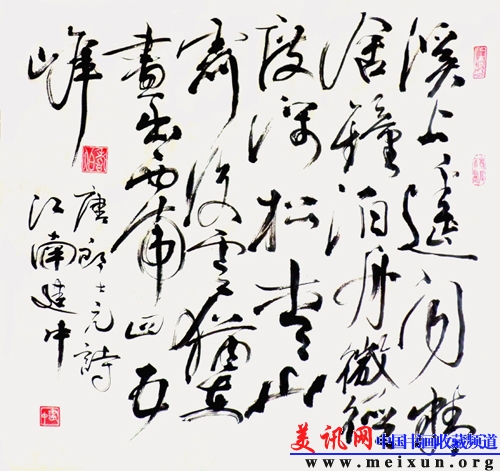 溪上遥闻精
舍鐘泊舟微徑
度深松青山
霽後雲猶在
畫出西南四五
峰
唐郎士元詩
江南建中
美讯网 中国书画收藏频道
www.meixun.org